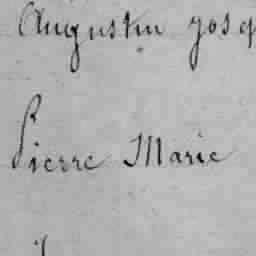 Augustin Josep
Pierre Marie